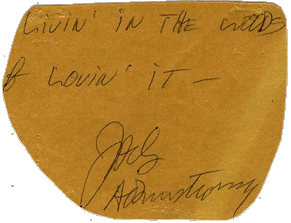 LIVIN' IN THE WOODS
& LOVIN' IT —
Jack
Armstrong